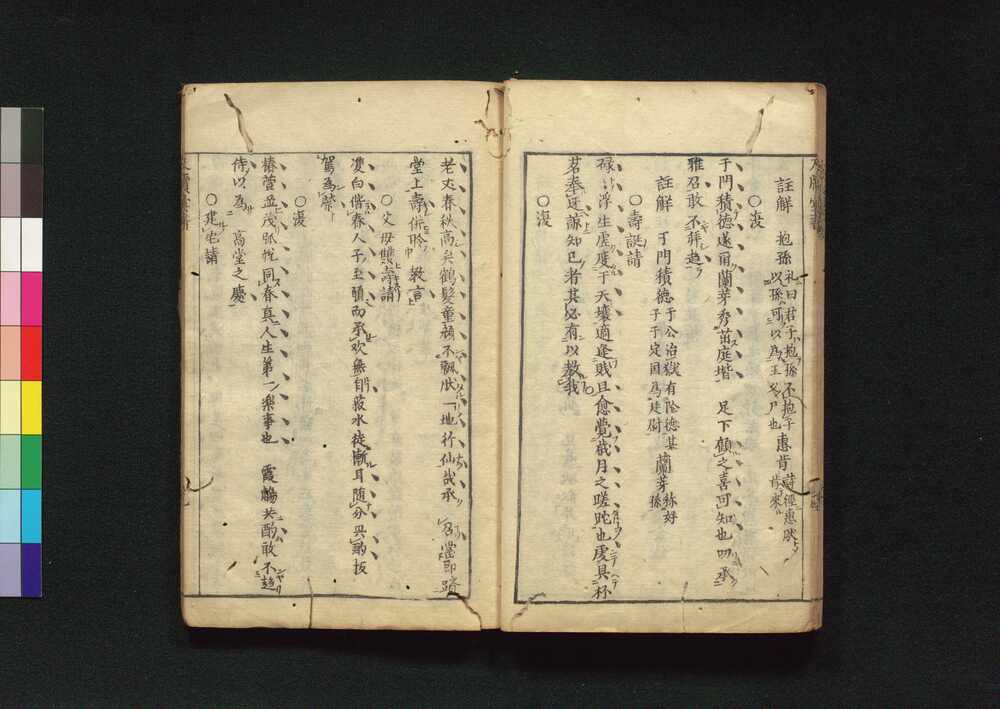 註解　抱孫 礼曰君子抱孫不抱子
以孫可以為王父尸也 惠肯 詩經惠然
肯來
○復
于門積德遂爾蘭芽秀茁庭堦　足下顧之喜可知也叨承
雅召敢不拜趋
註解　于門積德 于公治獄有陰德其
子于定國為廷尉 蘭芽 孫好
孫
○壽誕請
碌〻浮生虚度于天壤適逢賎旦愈覺歲月之蹉跎也虔具杯
茗奉迓諒知己者其必有以教我
○復
老丈春秋高矣鶴髮童顔不飄然一地行仙哉承　召當即躋
堂上壽併聆　教言
○父母雙壽請
雙白偕春人子至願而承欢無自菽水徒慚耳随分具酌扳
駕為榮
○復
椿萱並茂弧帨同春真人生第一樂事也　霞觴共酌敢不趋
侍以為　高堂之慶
○建宅請